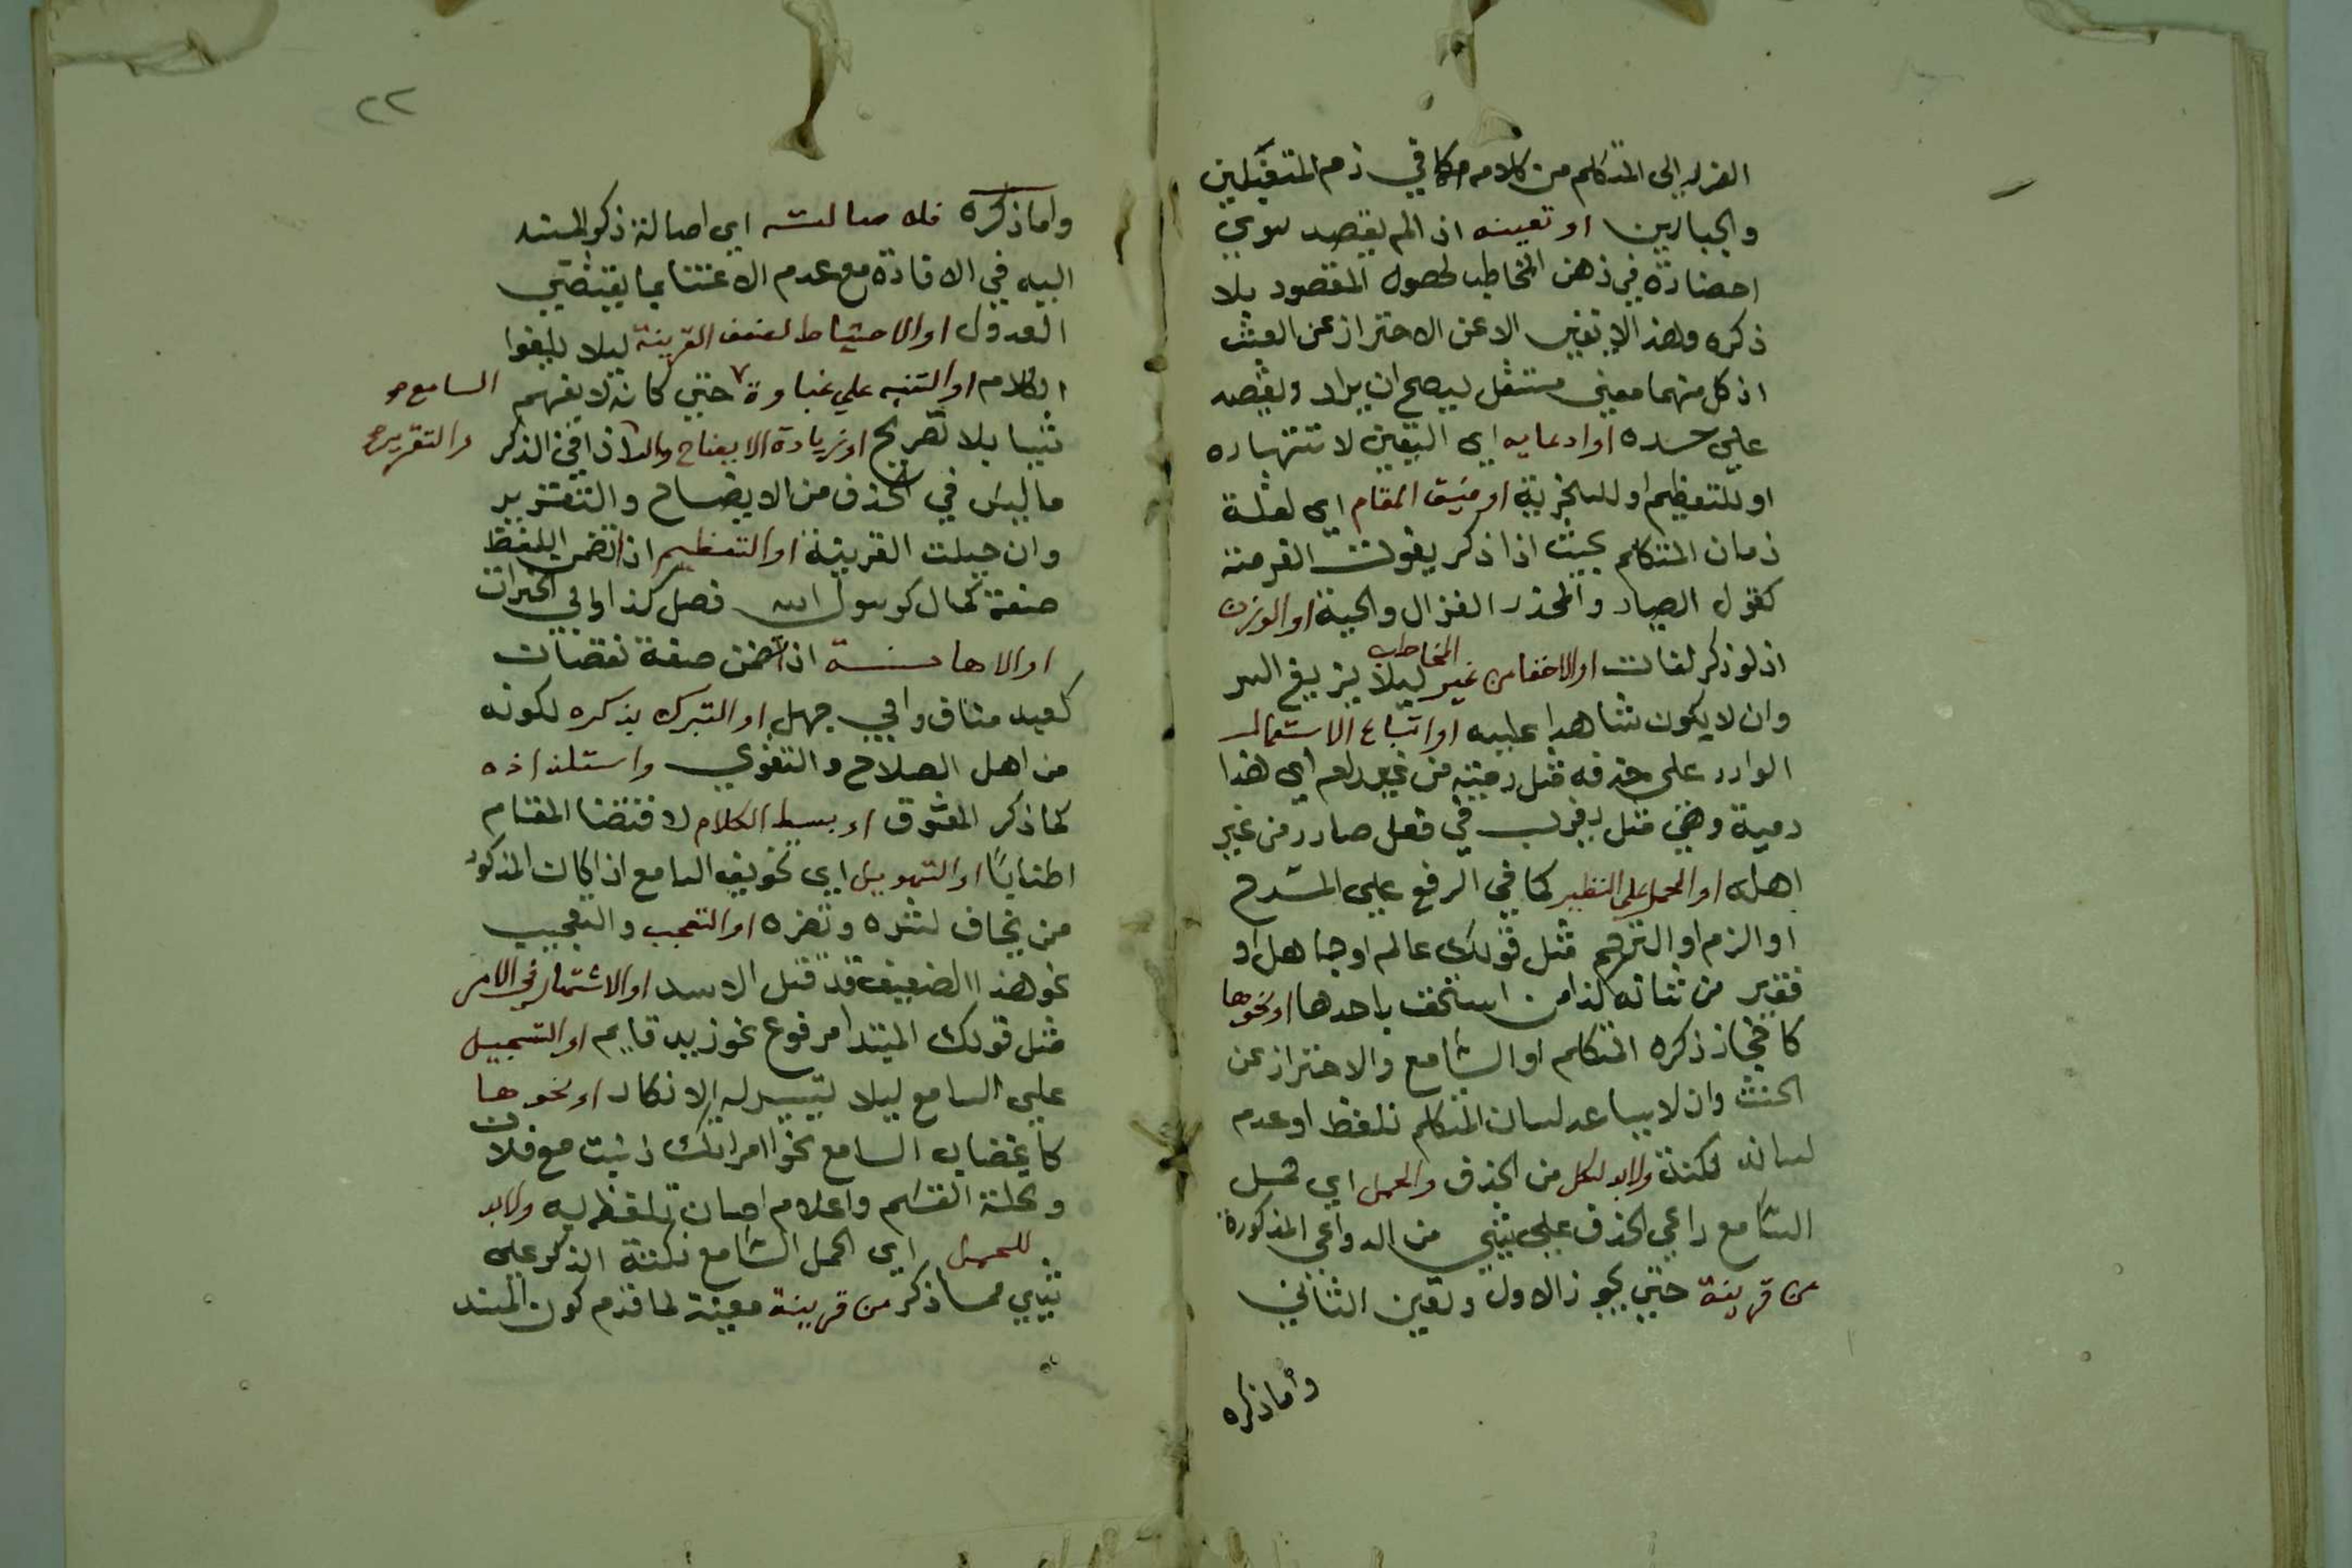 الضرر الى المتكلم من كلامه كما في ذم المتغلبين
والجبارين او تعينه اذ الم يقصد سوى
احضاره في ذهن المخاطب لحصول المقصود بلا
ذكره وهذا لا يغني الا عن الاحتراز عن العبث
اذ كل منهما معنى مستقل يصح ان يراد ويقصد
على حده او ادعايه اي التعين لاشتهاره
او للتعظيم او للسخرية او ضيق المقام اي لقلة
زمان المتكلم بحيث اذا ذكر يفوت الفرصة
كقول الصياد والمحذر الغزال والحية او الوزن
اذ لو ذكر لفات او الاخفا من غير المخاطب ليلا يزيغ السر
وان لا يكون شاهدا عليه او اتباع الاستعمال
الوارد على حذفه مثل رمية من غير رام اي هذا
رمية وهي مثل يضرب في فعل صادر من غير
اهله او الحمل على النظير كما في الرفع على المدح
او الذم او الترحم مثل قولك عالم او جاهل او
فقير من شانه كذا من استخف باحدها او نحوها
كا ذكره المتكلم او السامع والاحتراز عن
الحنث وان لا يساعد لسان المتكلم تلفظ او عدم
لسانه لكنة ولابد لكل من الحذف والحمل اي حمل
السامع داعي الحذف على شي من الدواعي المذكورة
من قرينة حتى يجوز الاول وتعين الثاني
واما ذكره
٢٢
واما ذكره فلاصالته اي اصالة ذكر المسند
اليه في الافادة مع عدم الاعتنا بما يقتضي
العدول او الاحتياط لضعف القرينة ليلا يلغوا
الكلام او التنبه علي غباوة السامع حتى كانه لا يفهم
شيا بلا تصريح او زيادة الايضاح والتقرير اذ في الذكر
ما ليس في الحذف من الايضاح والتقرير
وان جلت القرينة او التعظيم اذا تضمن اللفظ
صفة كمال كرسول الله فصل كذا وابي الخيرات
او الاهانة اذا تضمن صفة نقصان
كعبد مناف وابي جهل او التبرك بذكره لكونه
من اهل الصلاح والتقوي واستلذاذه
كما ذكر المعشوق او بسط الكلام لاقتضا المقام
اطنابا او التهويل اي تخويف السامع اذا كان المذكور
من يخاف لشره وضره او التعجب والتعجيب
نحو هذا الضعيف قد قتل الاسد او الاشتهار في الامر
مثل قولك المبتدا مرفوع نحو زيد قايم او التسجيل
علي السامع ليلا يتيسر له الانكار او نحوها
كاغضاب السامع نحو امراتك زنيت مع فلان
وتحلة القسم واعلام امكان تلفظ به ولابد
للحمل اي الحمل السامع نكتة الذكر علي
شي مما ذكر من قرينة معينة لما قدم كون المسند